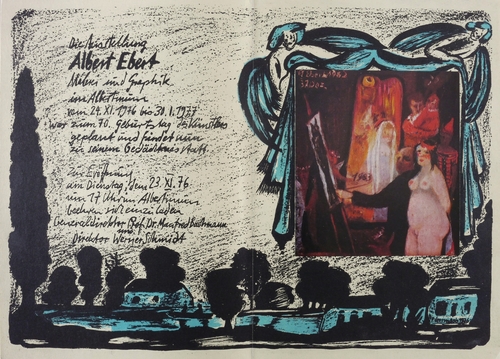 Die Ausstellung
Albert Ebert
Malerei und Graphik
im Albertinum
vom 24. XI. 1976 bis 30. 1. 1977
war zum 70. Geburtstag des Künstlers
geplant und findet nun
zu seinem Gedächtnis statt.
Zur Eröffnung
am Dienstag, dem 23. XI. 76
um 17 Uhr im Albertinum
beehren sich einzuladen
Generaldirektor Prof. Dr. Manfred Bachmann
und
Direktor Werner Schmidt